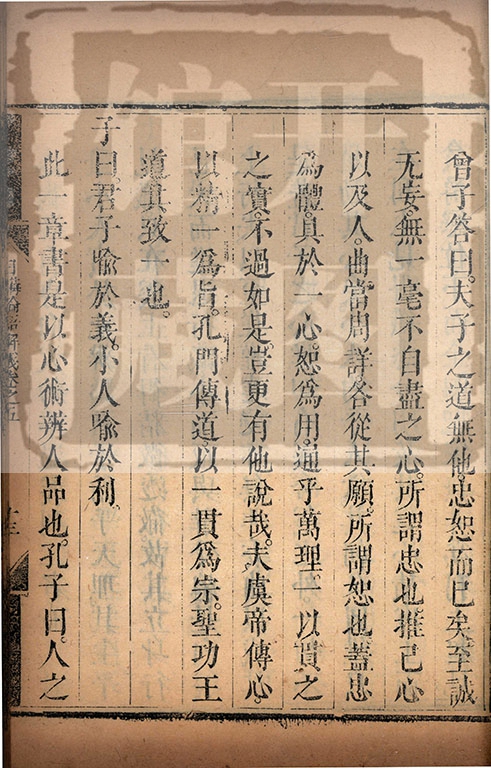 曾子答曰。夫子之道無他。忠恕而已矣。至誠
无妄。無一毫不自盡之心。所謂忠也。推己心
以及人。曲當周詳。各從其願。所謂恕也。蓋忠
爲體。具於一心。恕爲用。通乎萬理。一以貫之
之實。不過如是。豈更有他說哉。夫虞帝傳心。
以精一爲旨。孔門傳道。以一貫爲宗。聖功王
道。其致一也。
子曰。君子喻於義。小人喻於利。
此一章書。是以心術辨人品也。孔子曰。人之
日講論語解義卷之五
十三